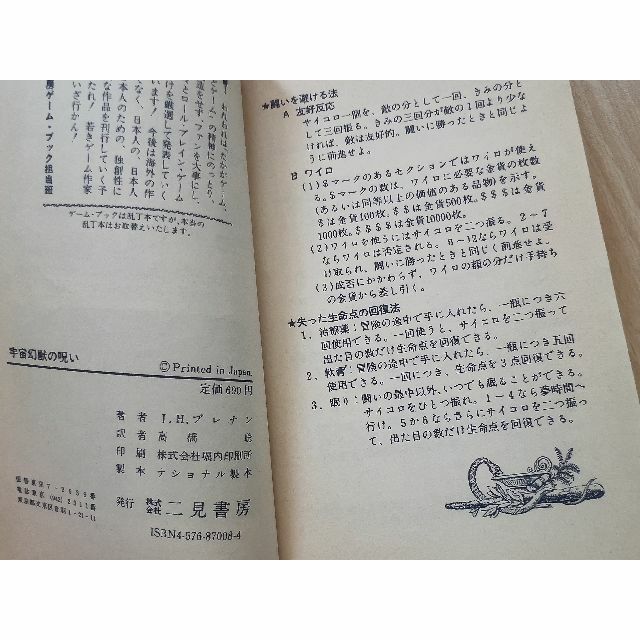 われわれは、たかがゲーム、
どゲーム」の精神にのっとり、
造をせず、ファンを大事にし、
クとロール・プレイング・ゲーム
けを厳選して発表していく
います！今後は海外の作
でなく、日本人の、日本人
本人のための、独創性に
な作品を刊行していく予
たたれ！若きゲーム作家
いざ行かん！
房ゲーム・ブック担当班
ゲーム・ブックは乱丁本ですが、本当の
乱丁本はお取替えいたします。
宇宙幻獣の呪い
Ⓒ Printed in Japan.
定価 690円
著者 J.H.ブレナン
訳者 高橋 聡
印刷 株式会社堀内印刷所
製本 ナショナル製本
発行 株式会社 二見書房
ISBN4-576-87008-4
★闘いを避ける法
A 友好反応
サイコロ一個を、敵の分として一回、きみの分と
して三回振る。きみの三回分が敵の1回より少な
ければ、敵は友好的。闘いに勝ったときと同じよ
うに前進せよ。
B ワイロ
(1)$マークのあるセクションではワイロが使え
る。$マークの数は、ワイロに必要な金貨の枚数
(あるいは同等以上の価値のある品物)を示す。
$は金貨100枚、$$は金貨500枚、$$$は金貨
1000枚。$$$$は金貨10000枚。
(2)ワイロを使うにはサイコロを二つ振る。2－7
ならワイロは否定される。8－12ならワイロは受
け取られ、闘いに勝ったときと同じく前進せよ。
(3)成否にかかわらず、ワイロの額の分だけ手持ち
の金貨から差し引く。
★失った生命点の回復法
1．治療薬：冒険の途中で手に入れたら、一瓶につき六
回使用できる。一回使うと、サイコロを二つ振って
出た目の数だけ生命点を回復できる。
2．軟膏：冒険の途中で手に入れたら、一瓶につき五回
使用できる。一回につき、生命点を3点回復できる。
3．眠り：闘いの最中以外、いつでも眠ることができる。
サイコロをひとつ振れ。1～4なら夢時間へ
行け。5か6ならさらにサイコロを二つ振っ
て、出た目の数だけ生命点を回復できる。